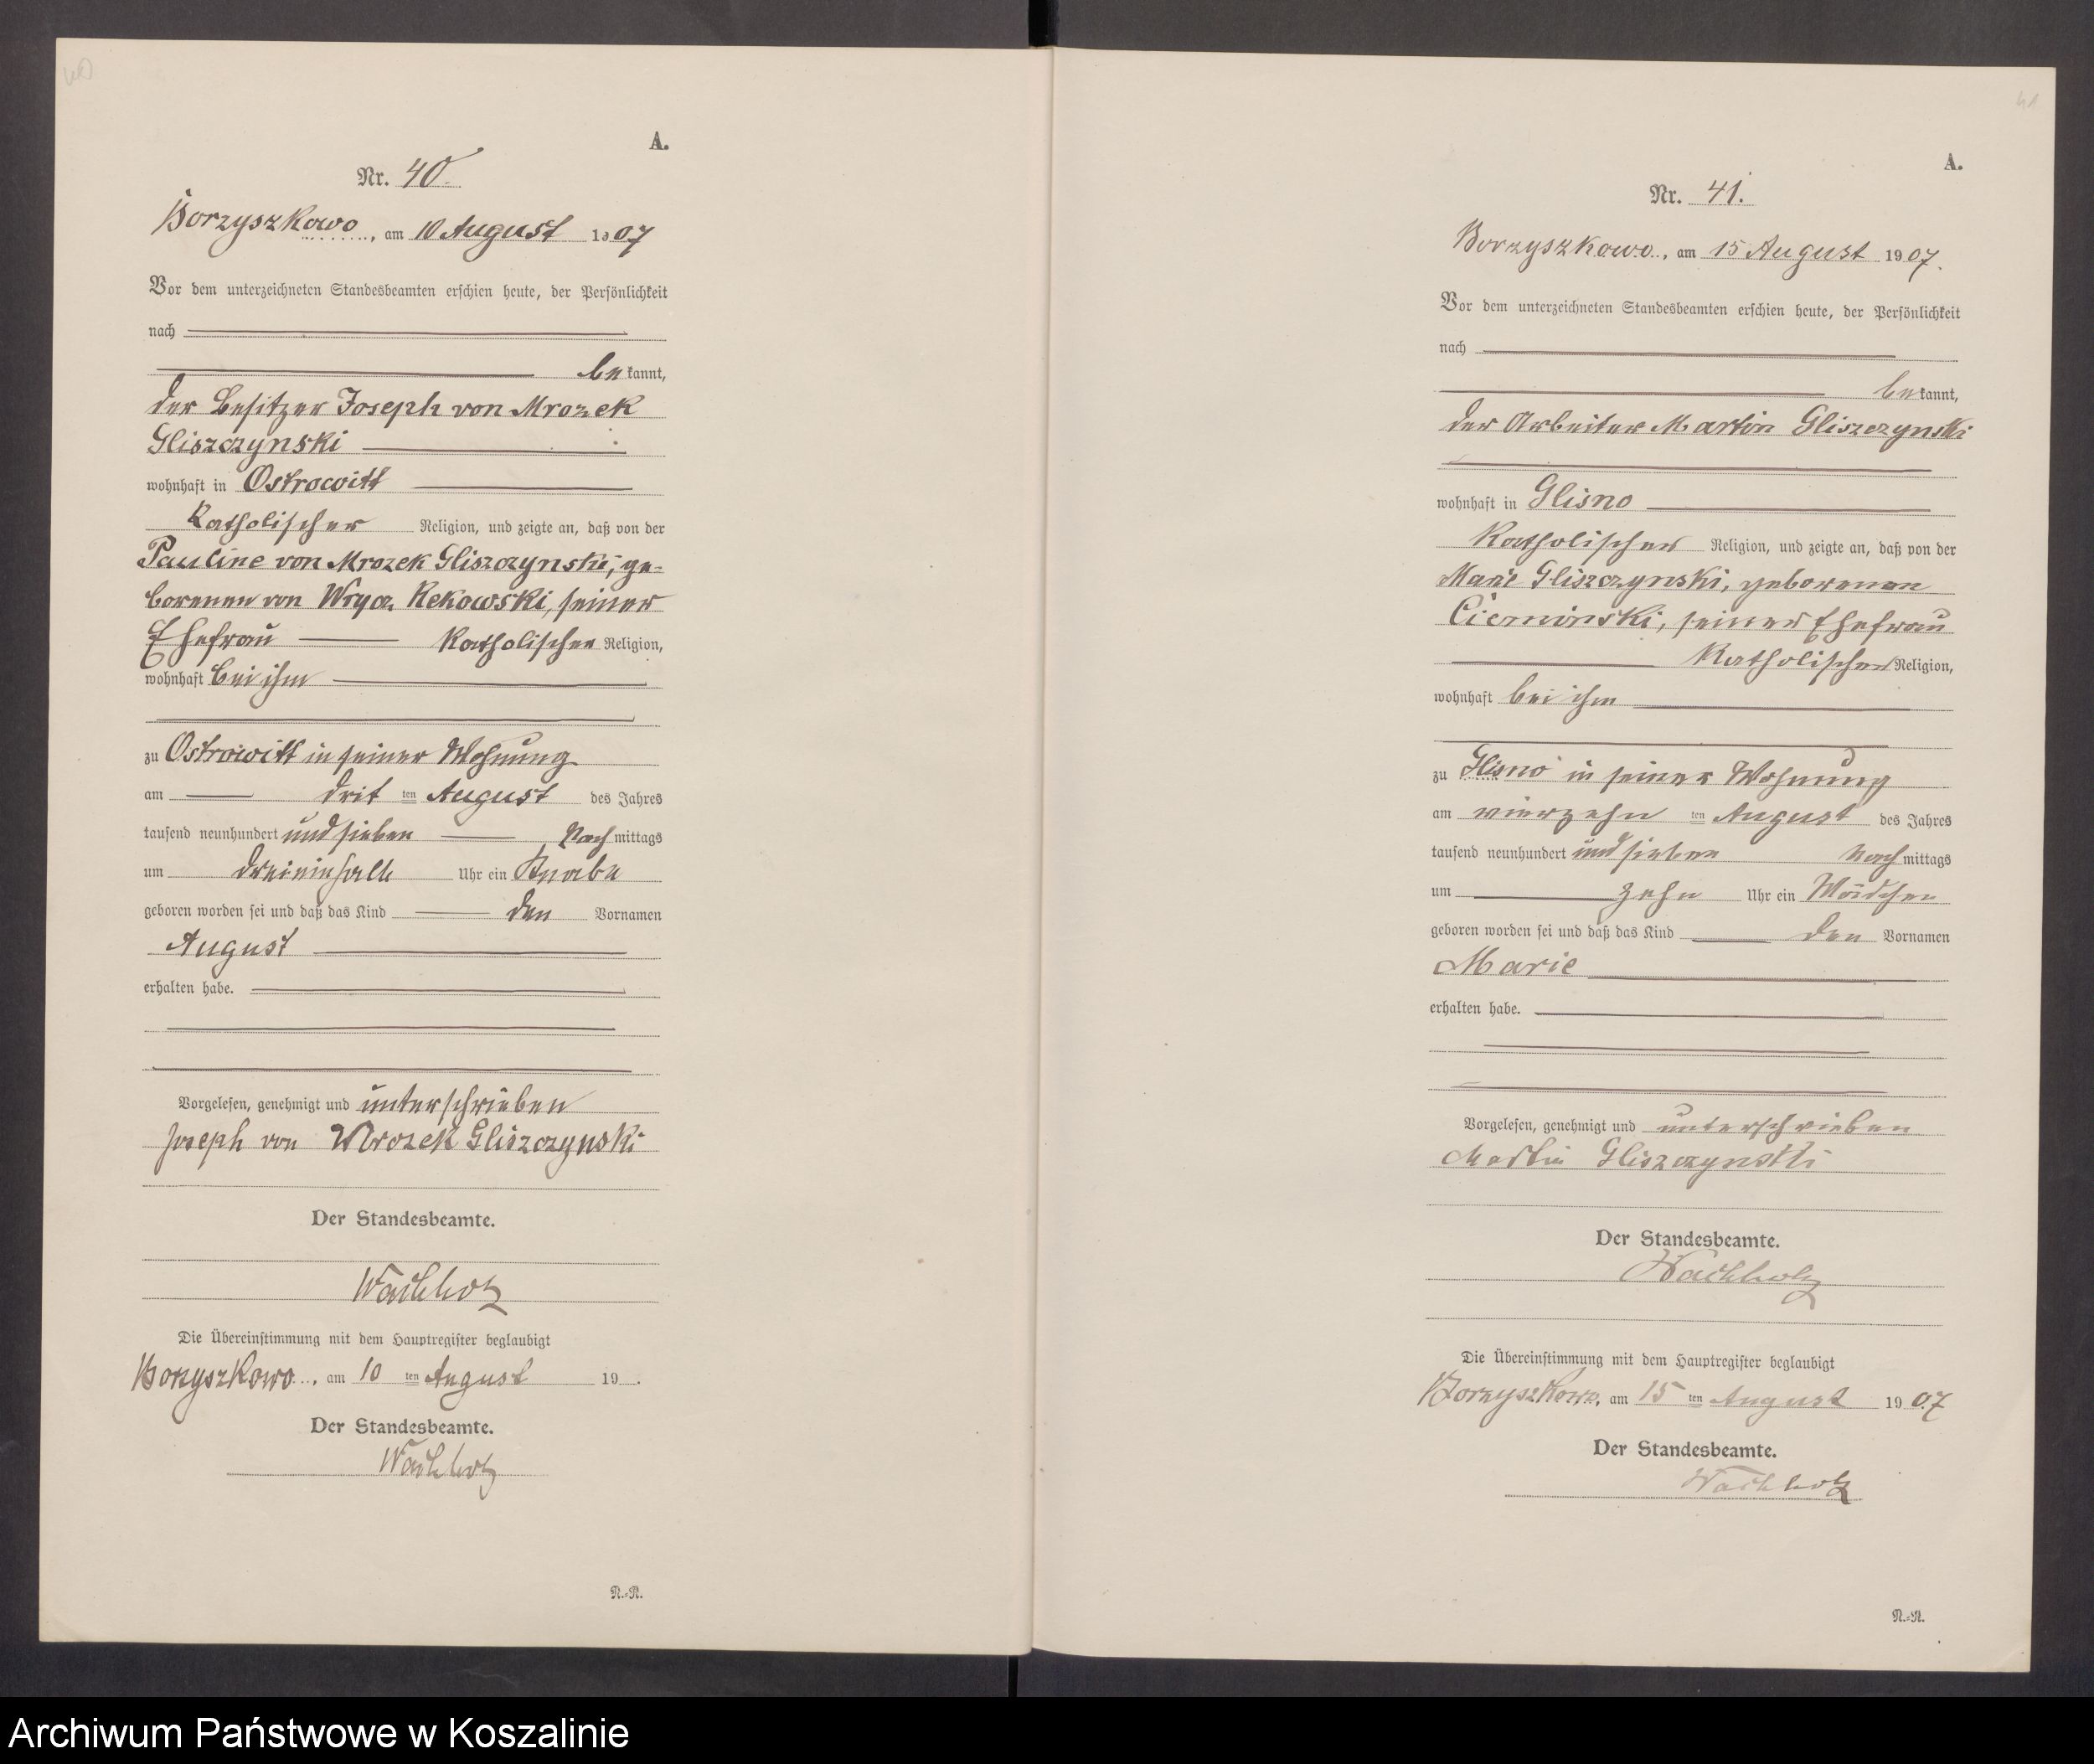 40
A.
Nr. 40.
Borzyszkowo, am 10 August 1907
Vor dem unterzeichneten Standesbeamten erschien heute, der Persönlichkeit
nach
be kannt,
der Besitzer Joseph von Mrozek
Gliszczynski
wohnhaft in Ostrowitt
Katholischer Religion, und zeigte an, daß von der
Pauline von Mrozek Gliszczynski, ge-
borenen von Wrycz Rekowski, seiner
Ehefrau Katholischer Religion,
wohnhaft bei ihm
zu Ostrowitt in seiner Wohnung
am drit ten August des Jahres
tausend neunhundert und sieben Nach mittags
um dreieinhalb Uhr ein Knabe
geboren worden sei und daß das Kind den Vornamen
August
erhalten habe.
Vorgelesen, genehmigt und unterschrieben
Joseph von Mrozek Gliszczynski
Der Standesbeamte.
Wachholz
Die Übereinstimmung mit dem Hauptregister beglaubigt
Borzyszkowo, am 10 ten August 19 .
Der Standesbeamte.
Wachholz
N.-N.
41
A.
Nr. 41.
Borzyszkowo, am 15 August 1907.
Vor dem unterzeichneten Standesbeamten erschien heute, der Persönlichkeit
nach
be kannt,
der Arbeiter Martin Gliszczynski
wohnhaft in Glisno
Katholischer Religion, und zeigte an, daß von der
Marie Gliszczynski, geborenen
Cierninski, seiner Ehefrau
Katholischer Religion,
wohnhaft bei ihm
zu Glisno in seiner Wohnung
am vierzehn ten August des Jahres
tausend neunhundert und sieben Nach mittags
um zehn Uhr ein Mädchen
geboren worden sei und daß das Kind den Vornamen
Marie
erhalten habe.
Vorgelesen, genehmigt und unterschrieben
Martin Gliszczynski
Der Standesbeamte.
Wachholz
Die Übereinstimmung mit dem Hauptregister beglaubigt
Borzyszkowo, am 15 ten August 1907
Der Standesbeamte.
Wachholz
N.-N.
Archiwum Państwowe w Koszalinie